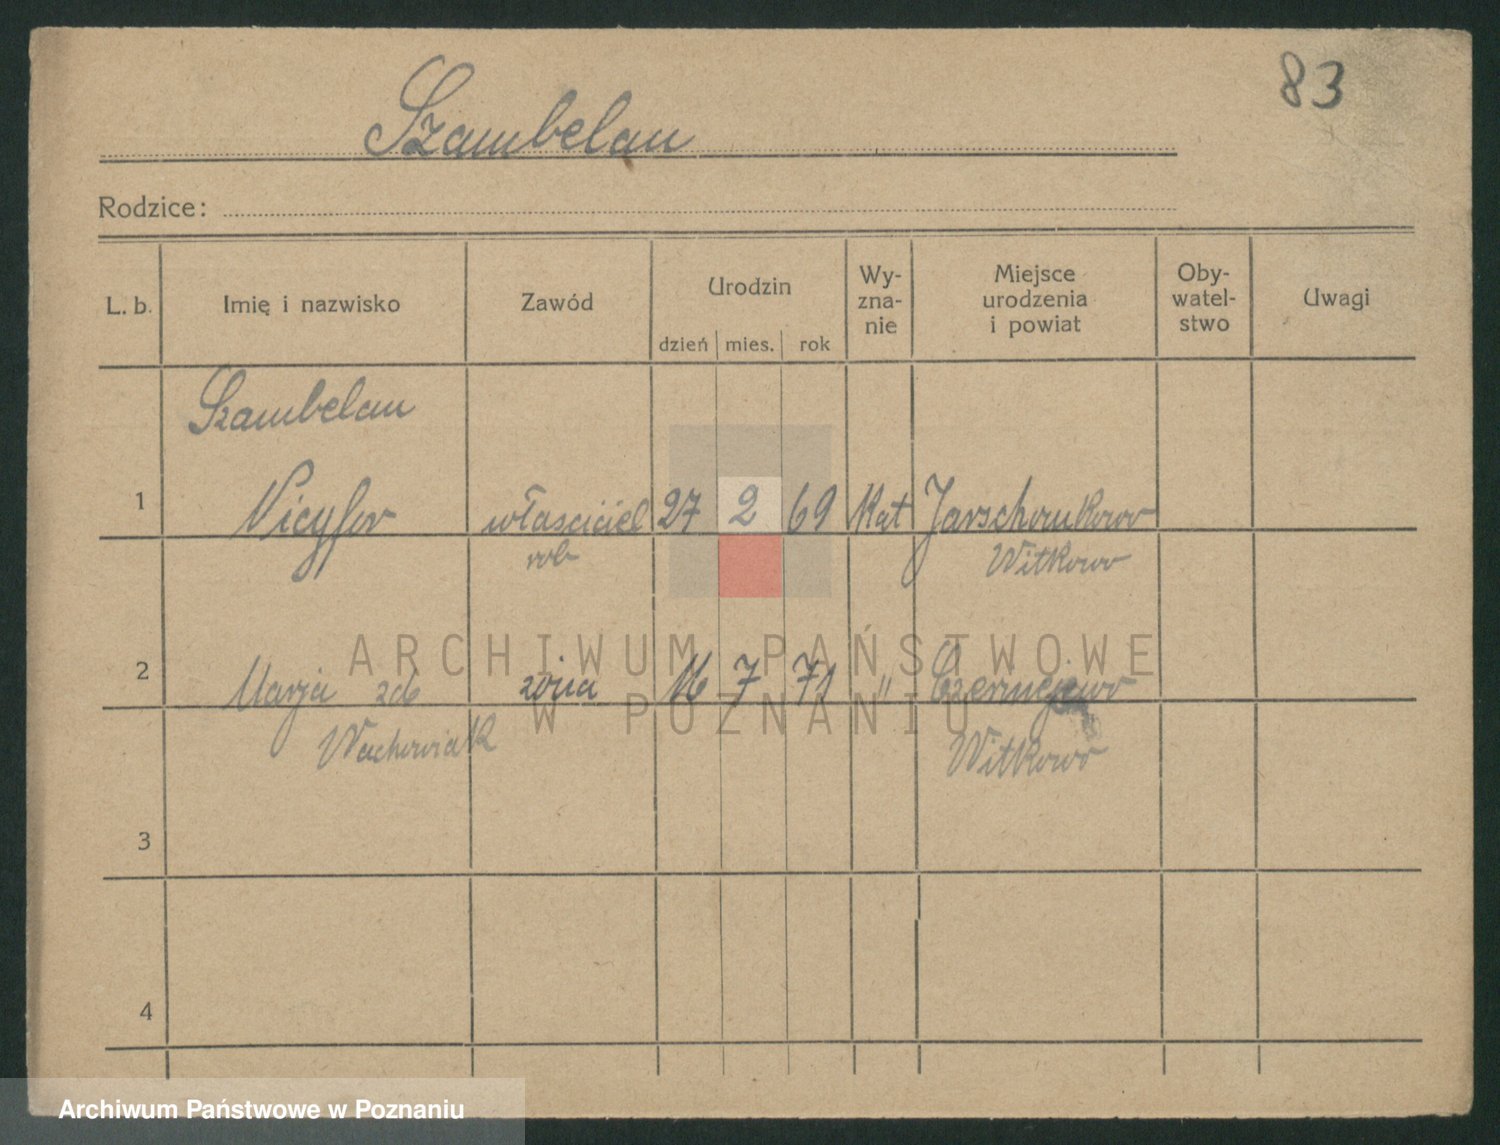 83
Szambelan
Rodzice:
L. b.
Imię i nazwisko
Zawód
Urodzin
dzień mies. rok
Wy-
zna-
nie
Miejsce
urodzenia
i powiat
Oby-
watel-
stwo
Uwagi
Szambelan
1 Nicyfor właściciel 27 2 69 Kat
rob Witkowo
2 Marja zd żona 16 7 71 " Czerniejewo
Wachowiak Witkowo
3
4
ARCHIWUM PAŃSTWOWE
W POZNANIU
Archiwum Państwowe w Poznaniu